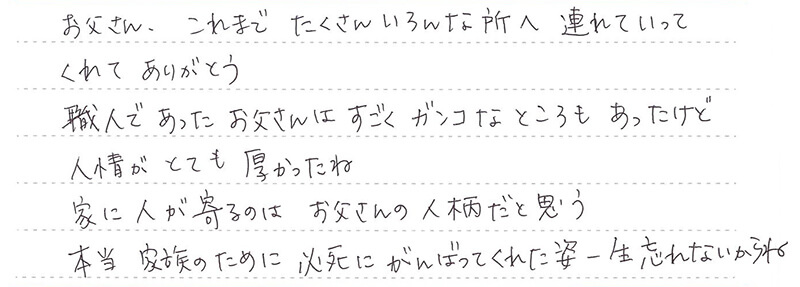 お父さん、これまで たくさん いろんな所へ 連れていって
くれて ありがとう
職人で あった お父さんは すごく ガンコな ところも あったけど
人情が とても 厚かったね
家に 人が 寄るのは お父さんの 人柄だと 思う
本当 家族のために 必死に がんばってくれた 姿 一生 忘れないからね